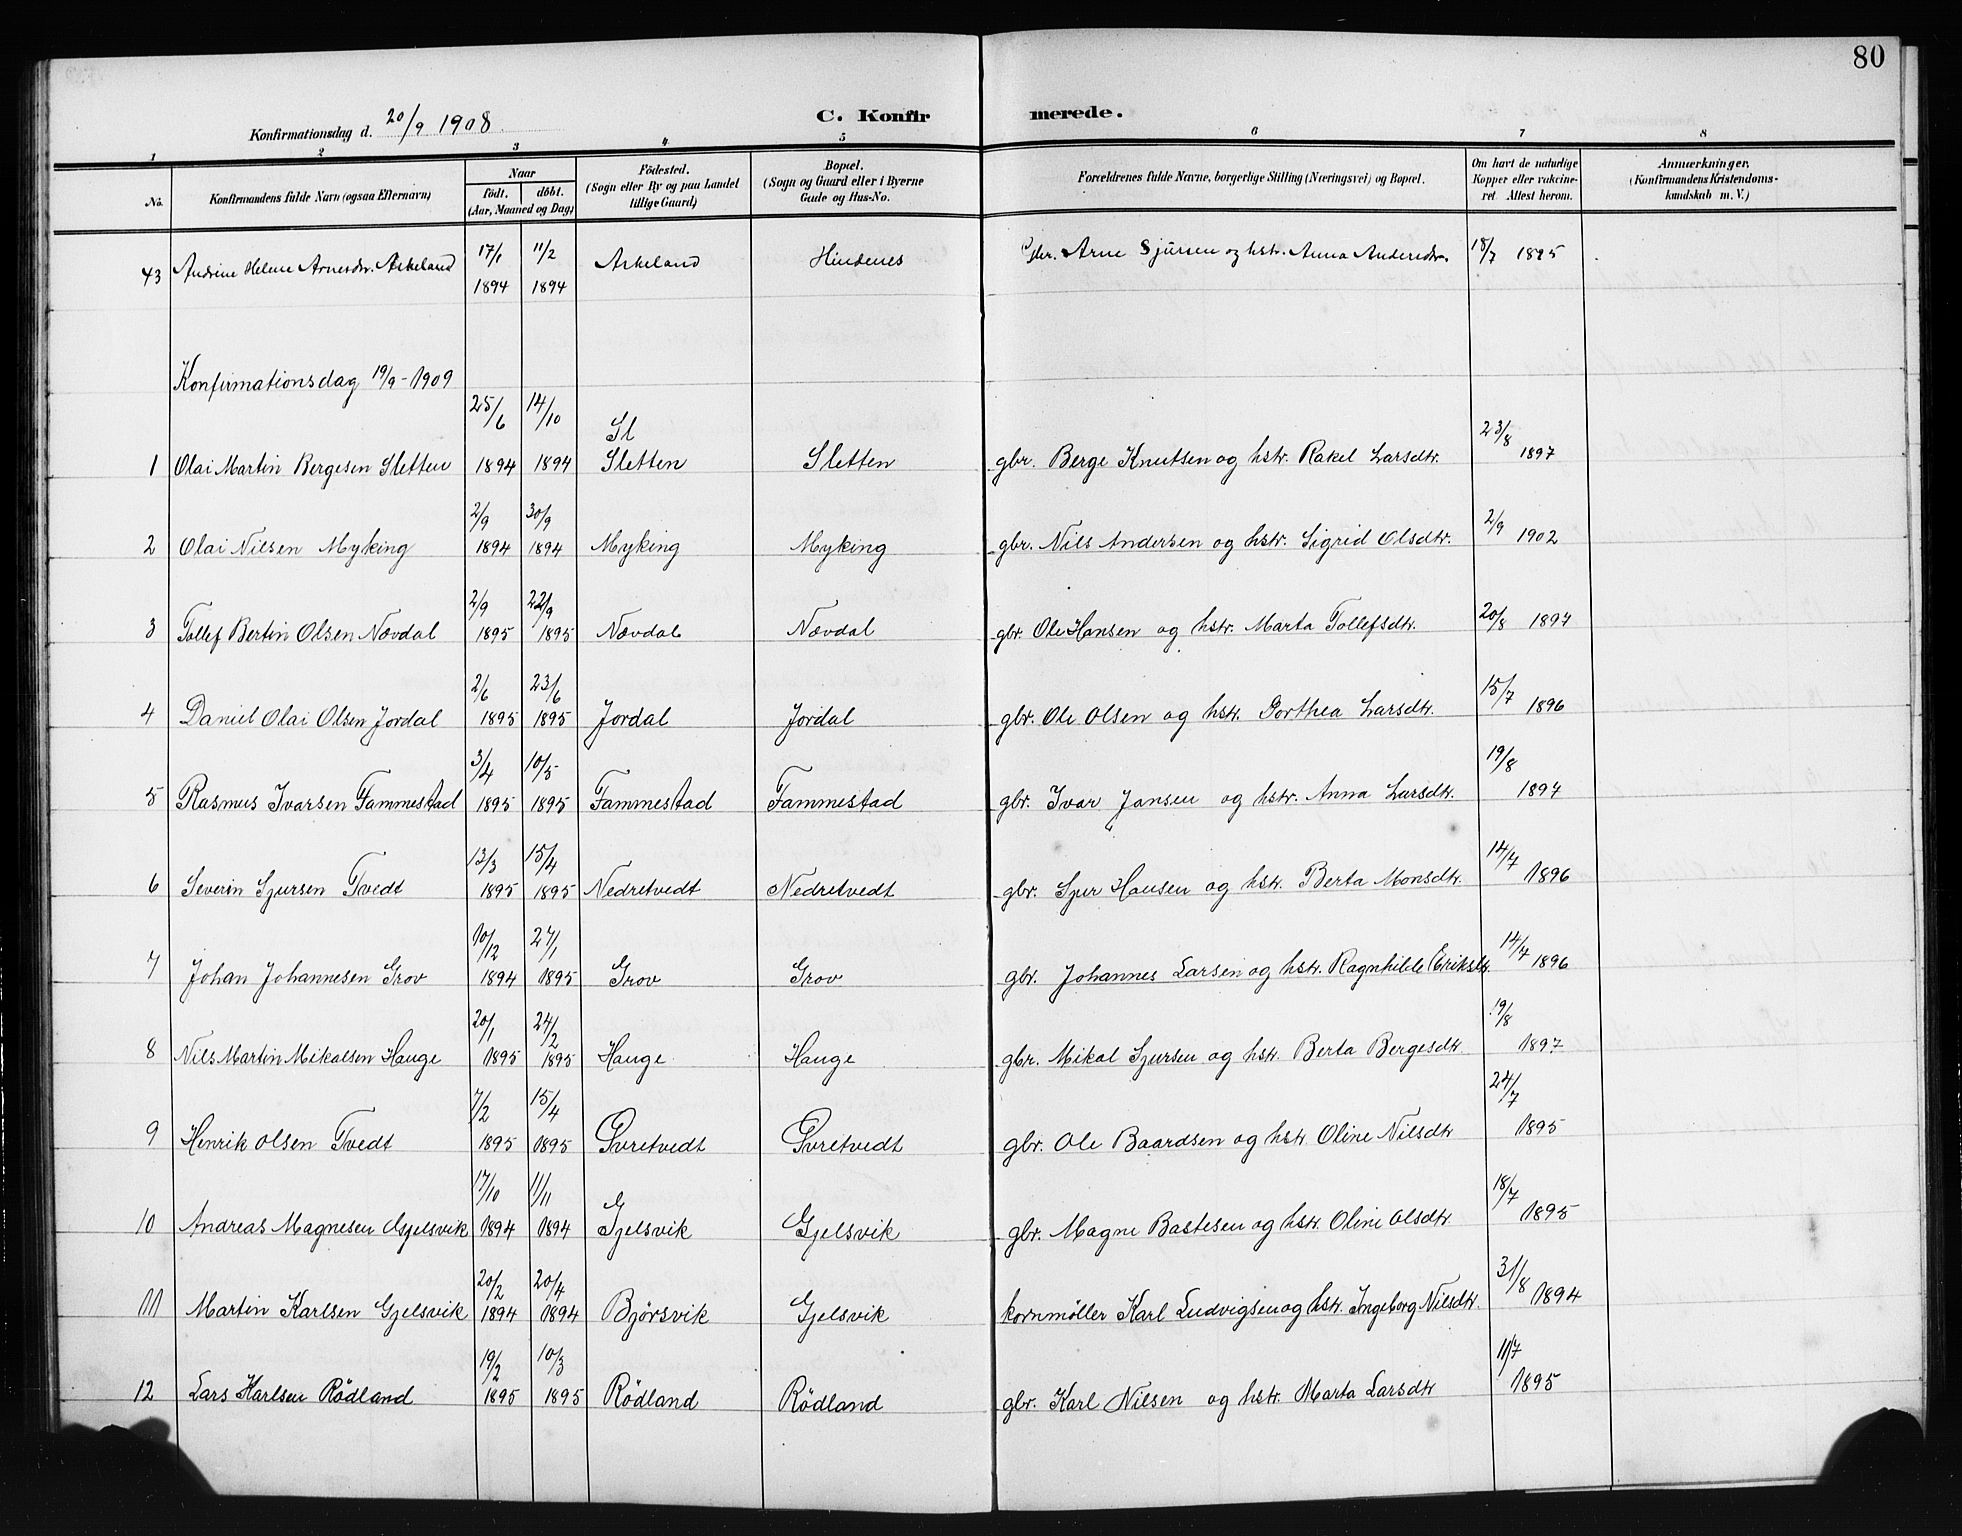 80
Konfirmationsdag d. 20/9 1908
C. Konfirmerede.
1 2 3 4 5 6 7 8
No.
Konfirmandens fulde Navn (ogsaa Efternavn)
Naar
født. døbt.
(Aar, Maaned og Dag)
Fødested.
(Sogn eller By og paa Landet
tillige Gaard)
Bopæl.
(Sogn og Gaard eller i Byerne
Gade og Hus-No.
Forældrenes fulde Navne, borgerlige Stilling (Næringsvei) og Bopæl.
Om havt de naturlige
Kopper eller vakcine-
ret Attest herom.
Anmærkninger.
(Konfirmandens Kristendoms-
kundskab m. V.)
43 Andrine Helene Arnesdtr. Askeland 17/1 1894 11/2 1894 Askeland Hindenes gbr. Arne Sjursen og hstr. Anna Andersdtr. 18/7 1895
Konfirmationsdag 19/9-1909
Sl
1 Olai Martin Bergesen Sletten 25/6 1894 14/10 1894 Sletten Sletten gbr. Berge Knutsen og hstr. Rakel Larsdtr. 23/8 1897
2 Olai Nilsen Myking 2/9 1894 30/9 1894 Myking Myking gbr. Nils Andersen og hstr. Sigrid Olsdtr. 2/9 1902
3 Tollef Bertin Olsen Nævdal 2/9 1895 22/9 1895 Nævdal Nævdal gbr. Ole Hansen og hstr. Marta Tollefsdtr. 20/8 1897
4 Daniel Olai Olsen Jordal 2/6 1895 23/6 1895 Jordal Jordal gbr. Ole Olsen og hstr. Dorthea Larsdtr. 15/7 1896
5 Rasmus Ivarsen Fammestad 3/4 1895 10/5 1895 Fammestad Fammestad gbr. Ivar Jansen og hstr. Anna Larsdtr. 19/8 1897
6 Severin Sjursen Tvedt 13/3 1895 15/4 1895 Nedretvedt Nedretvedt gbr. Sjur Hansen og hstr. Berta Monsdtr. 14/7 1896
7 Johan Johannesen Grov 10/12 1894 27/1 1895 Grov Grov gbr. Johannes Larsen og hstr. Ragnhilde Eriksdtr. 14/7 1896
8 Nils Martin Mikalsen Hauge 20/1 1895 24/2 1895 Hauge Hauge gbr. Mikal Sjursen og hstr. Berta Bergesdtr. 19/8 1897
9 Henrik Olsen Tvedt 7/2 1895 15/4 1895 Øvretvedt Øvretvedt gbr. Ole Baardsen og hstr. Oline Nilsdtr 24/7 1895
10 Andreas Magnesen Gjelsvik 17/10 1894 11/11 1894 Gjelsvik Gjelsvik gbr. Magne Bastesen og hstr. Oline Olsdtr. 18/7 1895
11 Martin Karlsen Gjelsvik 20/2 1894 20/4 1894 Bjørsvik Gjelsvik kornmøller Karl Ludvigsen og hstr. Ingeborg Nilsdtr. 31/8 1894
12 Lars Karlsen Rödland 19/2 1895 10/3 1895 Rödland Rödland gbr. Karl Nilsen og hstr. Marta Larsdtr 11/7 1895